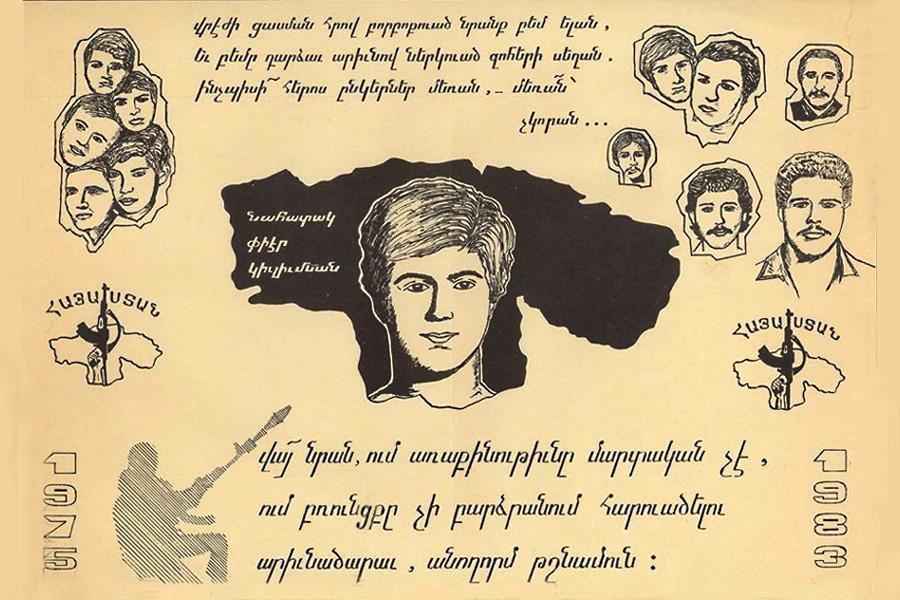 վրէժի ցասման հրով բորբոքուած նրանք բեմ ելան,
եւ բեմը դարձաւ արիւնով ներկուած զոհերի սեղան.
ինչպիսի՜ հերոս ընկերներ մեռան,— մեռա՜ն՝
չկորան...
Նահատակ
փիէր
կիւլիւմեան
ՀԱՅԱՍՏԱՆ
ՀԱՅԱՍՏԱՆ
վա՜յ նրան, ում առաքինութիւնը մարտական չէ,
ում բռունցքը չի բարձրանում հարուածելու
արիւնածարաւ, անողորմ թշնամուն:
1975
1983